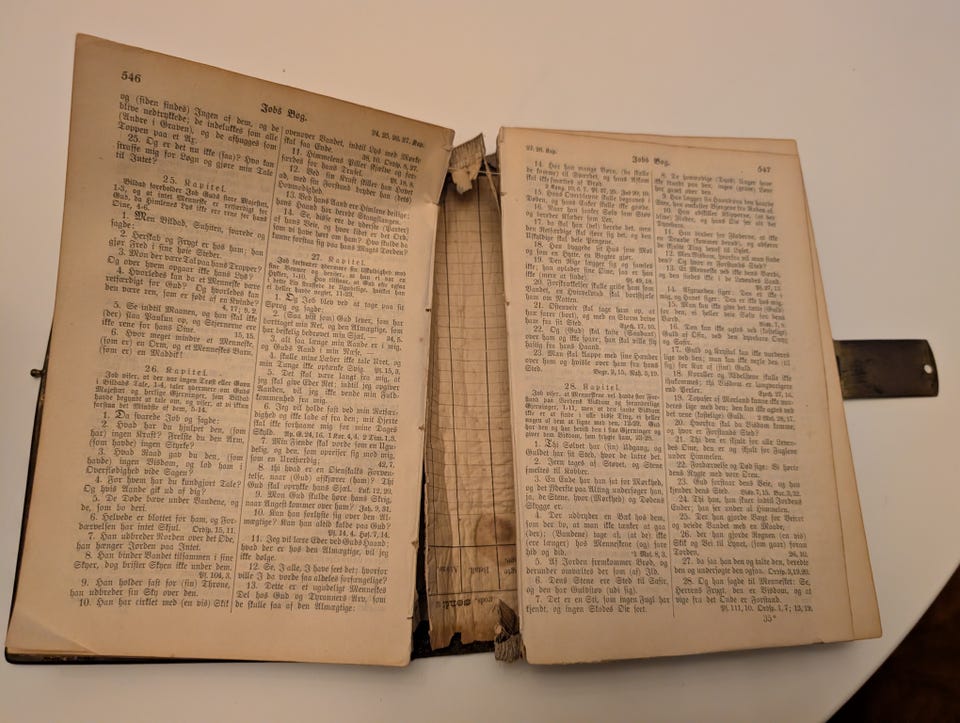 546
Jobs Bog.
24. 25. 26. 27. Kap.
og (siden findes) Ingen af dem, og de
blive nedtrykkede; de indelukkes som alle
(Andre i Graven), og de afhugges som
Toppen paa et Ax.
25. Og er det nu ikke (saa)? Hvo kan
straffe mig for Løgn og gjøre min Tale
til Intet?
25. Kapitel.
Bildad foreholder Job Guds store Majestæt,
1-3, og at intet Menneske er retfærdigt for
Gud, da Himlens Lys ikke ere rene for hans
Øine, 4-6.
1. Men Bildad, Suhiten, svarede og
sagde:
2. Herskab og Frygt er hos ham; han
gjør Fred i sine høie Steder.
3. Mon der være Tal paa hans Tropper?
Og over hvem opgaar ikke hans Lys?
4. Hvorledes kan da et Menneske være
retfærdigt for Gud? Og hvorledes kan
den være ren, som er født af en Kvinde?
4, 17; 9, 2.
5. Se indtil Maanen, og han skal ikke
(der) slaa Paulun op, og Stjernerne ere
ikke rene for hans Øine. 15, 15.
6. Hvor meget mindre et Menneske,
(som er) en Orm, og et Menneskes Barn,
(som er) en Maddik!
26. Kapitel.
Job viser, at der var ingen Trøst eller Gavn
i Bildads Tale, 1-4, taler ydermere om Guds
Majestæt og herlige Gjerninger, som Bildad
havde begyndt at tale om, og viser, at vi ikke
forstaa det Mindste af dem, 5-14.
1. Da svarede Job og sagde:
2. Hvad har du hjulpet den, (som
har) ingen Kraft? Frelste du den Arm,
(som havde) ingen Styrke?
3. Hvad Raad gav du den, (som
havde) ingen Visdom, og lod ham i
Overflødighed vide Sagen?
4. For hvem har du kundgjort Tale?
Og hvis Aande gik ud af dig?
5. De Døde bæve under Vandene, og
de, som bo deri.
6. Helvede er blottet for ham, og For-
dærvelsen har intet Skjul. Ordsp. 15, 11.
7. Han udbreder Norden over det Øde,
han hænger Jorden paa Intet.
8. Han binder Vandet tilsammen i sine
Skyer, dog brister Skyen ikke under dem.
Ps. 104, 3.
9. Han holder fast for (sin) Throne,
han udbreder sin Sky over den.
10. Han har cirklet med (en vis) Skik
ovenover Vandet, indtil Lys med Mørke
skal faa Ende. 38, 10. Ordsp. 8, 27.
11. Himmelens Piller skjælve og for-
færdes for hans Trusel.
12. Ved sin Kraft stiller han Havet
af, med sin Forstand dæmper han (dets)
Hovmodighed.
13. Ved hans Aand ere Himlene deilige;
14. Se, disse ere de yderste (Parter)
af hans Veie, og hvor lidet er det Ord,
som vi have hørt om ham? Hvo skulde da
kunne forstaa sig paa hans Magts Torden?
27. Kapitel.
1. Og Job blev ved at tage paa sit
Sprog og sagde:
2. (Saa vist som) Gud lever, som har
borttaget min Ret, og den Almægtige, som
har beskelig bedrøvet min Sjæl,— 34, 5.
3. alt saa længe min Aande er i mig,
og Guds Aand i min Næse,—
4. skulle mine Læber ikke tale Uret, og
min Tunge ikke optænke Svig. 13, 7.
5. Det skal være langt fra mig, at
jeg skal give Eder Ret; indtil jeg opgiver
Aanden, vil jeg ikke vende min Fuld-
kommenhed fra mig.
6. Jeg vil holde fast ved min Retfær-
dighed og ikke lade af fra den; mit Hjerte
skal ikke forhaane mig for mine Dages
Skyld. Ap. G. 24, 16. 1 Kor. 4, 4. 2 Tim. 1, 3.
7. Min Fiende skal være som en Ugu-
delig, og den, som opreiser sig mod mig,
som en Uretfærdig; 42, 7.
8. thi hvad er en Øienskalks Forven-
telse, naar (Gud) afskjærer (ham)? Thi
Gud skal oprykke hans Sjæl. Luk. 12, 20.
9. Mon Gud skulde høre hans Skrig,
naar Angest kommer over ham? Joh. 9, 31.
10. Kan han forlyste sig over den Al-
mægtige? Kan han altid kalde paa Gud?
Ps. 14, 4. Hos. 7, 14.
11. Jeg vil lære Eder ved Guds Haand;
hvad der er hos den Almægtige, vil jeg
ikke dølge.
12. Se, I alle, I have seet det; hvorfor
ville I da vorde saa aldeles forfængelige?
13. Dette er et ugudeligt Menneskes
Del hos Gud og Tyranners Arv, som
de skulle faa af den Almægtige:
27. 28. Kap.
Jobs Bog.
547
14. Har han mange Børn, (da skulle
de komme) til Sværdet, og hans Afkom
skal ikke mættes af Brød.
15. Hans Overblevne skulle begraves i
Døden, og hans Enker skulle ikke græde.
16. Naar han sanker Sølv som Støv
og bereder Klæder som Ler,
17. da skal han (vel) berede det, men
den Retfærdige skal føre sig det, og den
Uskyldige skal dele Pengene.
18. Han byggede sit Hus som Møl
og som en Hytte, en Vogter gjør.
19. Den Rige lægger sig og samles
ikke; han oplader sine Øine, saa er han
ikke (mere at finde). Ps. 49, 18.
20. Forskrækkelser skulle gribe ham som
Vandet, en Hvirvelvind skal bortstjæle
ham om Natten.
21. Østenveir skal tage ham op, at
han farer (bort), og med en Storm drive
ham fra sit Sted.
22. Og (Gud) skal kaste (Saadant)
over ham og ikke spare; han skal ville fly
hastig fra hans Haand.
23. Man skal klappe med sine Hænder
over ham og hvisle over ham fra hans
Sted.
28. Kapitel.
1. Thi Sølvet har (sin) Udgang, og
Guldet har sit Sted, hvor de lutre det.
2. Jern tages af Støvet, og Stene
smeltes til Kobber.
3. En Ende har han sat for Mørkhed,
og det Yderste paa Alting undersøger han,
ja, de Stene, hvor (Mørkhed) og Dødens
Skygge er.
4. Der udbryder en Bæk hos dem,
som der bo, at man ikke tænker at gaa
(der); (Vandene) tage af, (at de) ikke
(ere længer) hos Menneskene (og) fare
hid og did.
5. Af Jorden fremkommer Brød, og
derunder omvæltes der (som af) Ild.
6. Dens Stene ere Sted til Safir,
og den har Guldstøv (udi sig).
7. Det er en Sti, som ingen Fugl har
kjendt, og ingen Skades Øie seet.
8. De hovmodige (Dyr)s Unger have
ikke traadt paa den; ingen (grum) Løve
har gaaet ad den.
9. Han lægger sin Haand paa den haarde
Sten, han omkaster Bjergene fra Roden af.
10. Han udskiller Klipperne, (at der
bliver) Floder, og hans Øie ser alt det
Dyrebare.
11. Han binder for Floderne, at ikke
en Draabe (kommer deraf), og udfører
de skjulte Ting deraf til Lyset.
12. Men Visdom, hvorfra vil man finde
den? Og hvor er Forstands Sted?
13. Et Menneske ved ikke dens Værdi,
og den findes ikke i de Levendes Land.
14. Afgrunden siger: Den er ikke i
mig, og Havet siger: Den er ikke hos mig.
15. Man kan ikke give det rene (Guld)
for den, ei heller veie Sølv for dens
Værd.
16. Den kan ikke agtes ved (kosteligt)
Guld af Ofir, ved den dyrebare Onyx
og Safir.
17. Guld og Krystal kan ikke vurderes
lige ved den; man kan ikke veksle den (til
sig) for Kar af (fint) Guld.
18. Koraller og Ædelstene skulle ikke
ihukommes; thi Visdom er langværdigere
end Perler.
19. Topaser af Morland kunne ikke vur-
deres lige med den; den kan ikke agtes ved
det (kostelige) Guld.
20. Hvorfra skal da Visdom komme,
og hvor er Forstands Sted?
21. Thi den er skjult for alle Leven-
des Øine, den er og skjult for Fuglene
under Himmelen.
22. Fordærvelse og Død sige: Vi hørte
dens Rygte med vore Øren.
23. Gud forstaar dens Veie, og Han
kjender dens Sted.
24. Thi han, han skuer indtil Jordens
Ender; han ser under al Himmelen.
25. Der han gjorde Vægt for Veiret
og veiede Vandet med en Maade,
26. der han gjorde Regnen (en vis)
Skik og Vei til Lynet, (som gaar) foran
Torden,
27. da saa han den og talte den, beredte
den og undersøgte den ogsaa.
28. Og han sagde til Mennesket: Se,
Herrens Frygt, den er Visdom, og at
vige fra det Onde er Forstand.
Ps. 111, 10. Ordsp. 1, 7; 13, 19.
35*